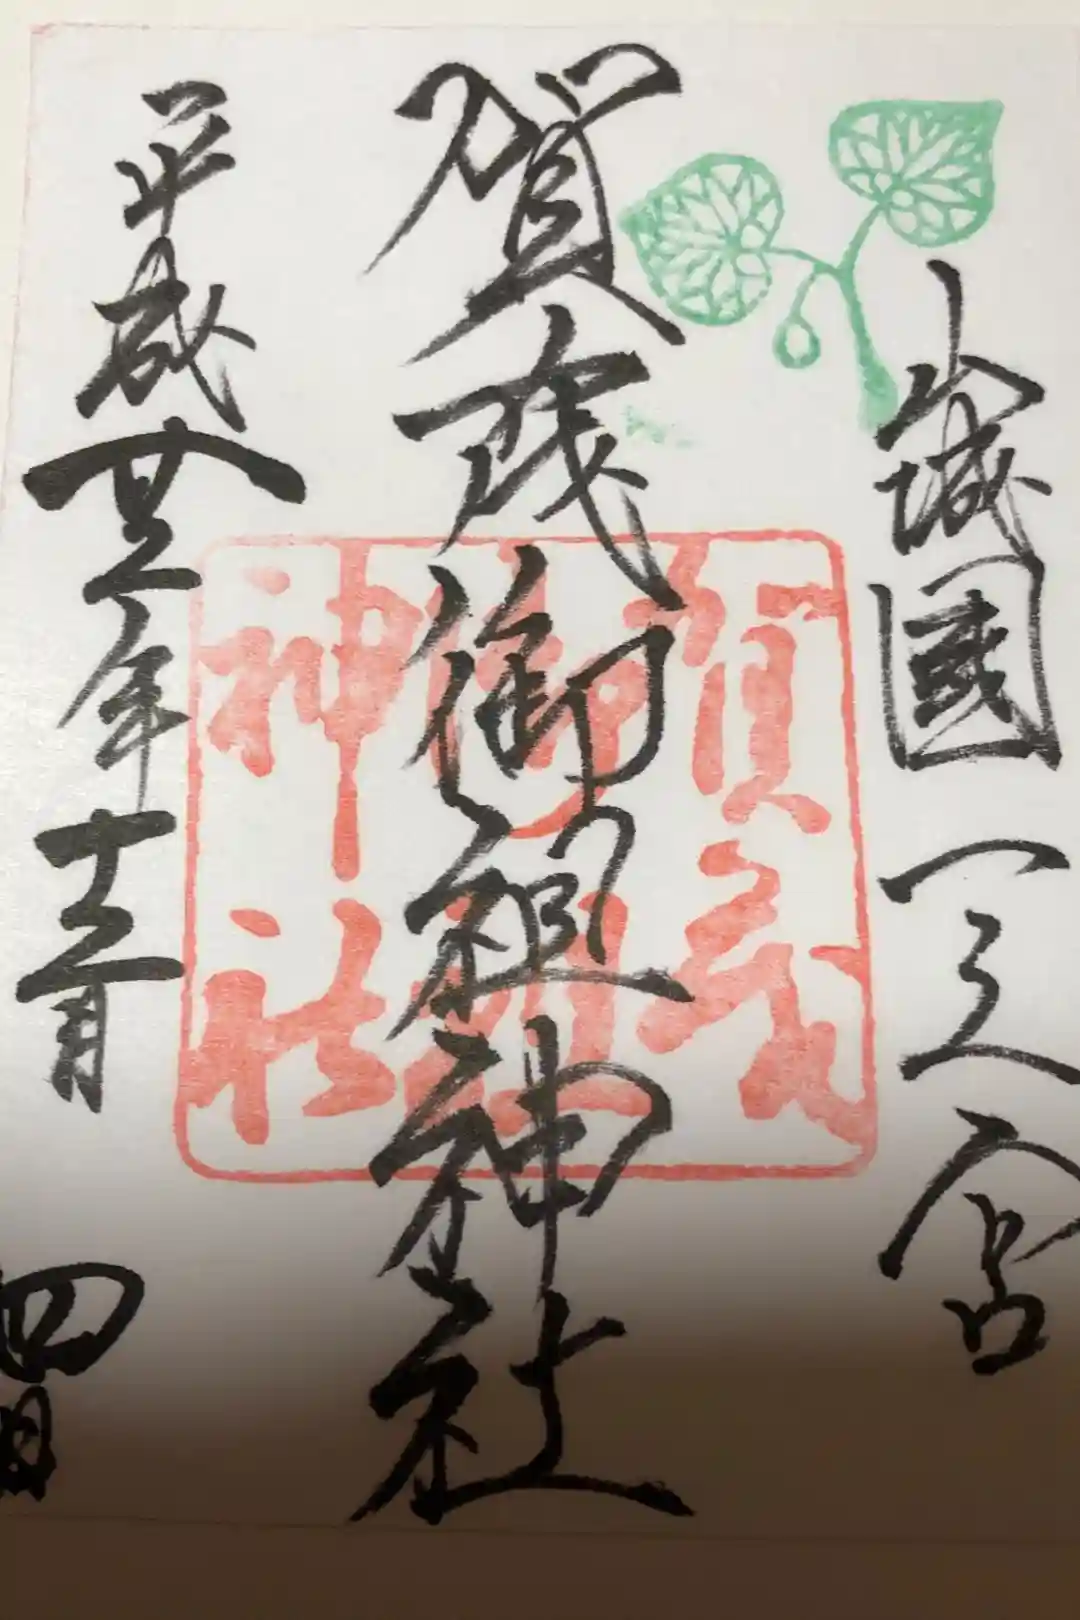 山城國一之宮
賀茂御祖神社
平成廿年十二月四日
賀茂
御祖
神社